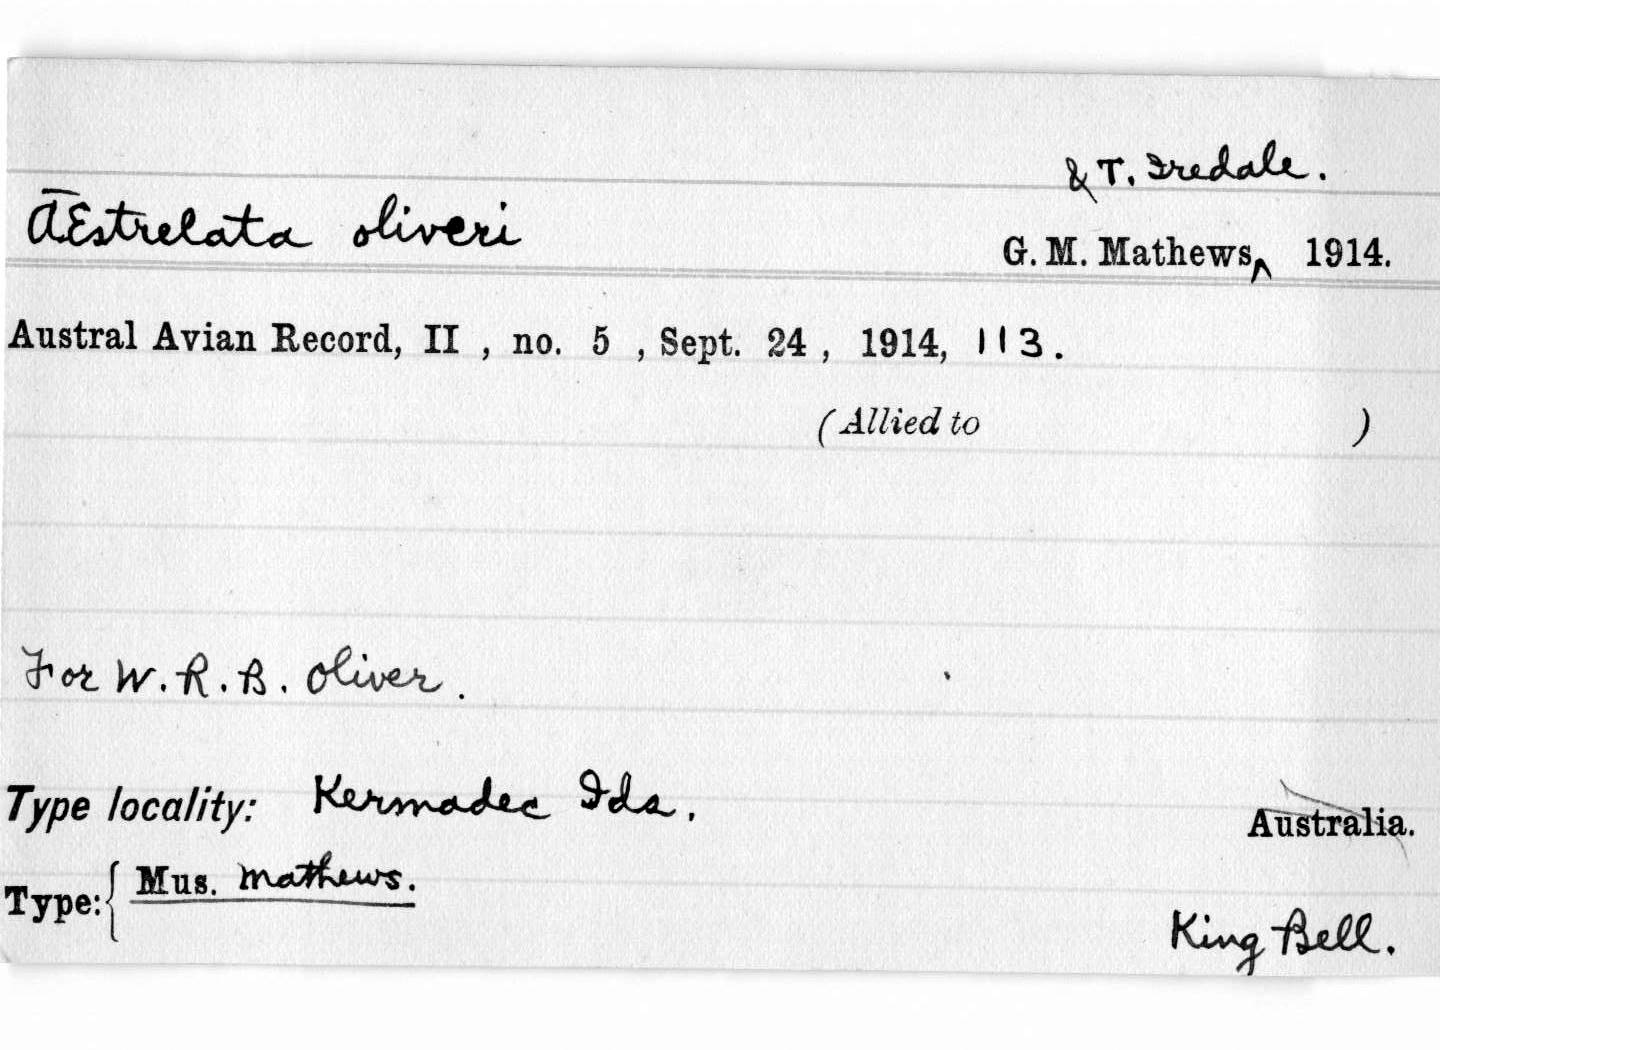 & T. Iredale.
Æstrelata oliveri
G. M. Mathews‸ 1914.
Austral Avian Record, II , no. 5 , Sept. 24 , 1914, 113.
(Allied to )
For W. R. B. Oliver.
Type locality: Kermadec Ids. Australia.
Type:{ Mus. Mathews.
King Bell.